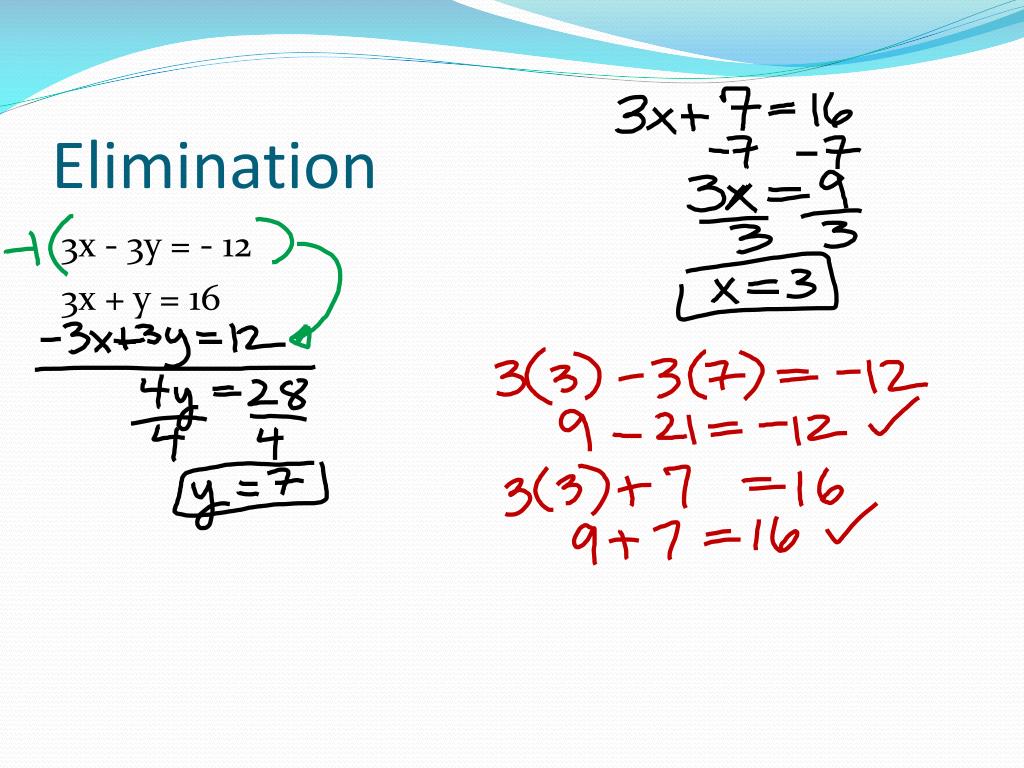 Elimination
-1(3x - 3y = - 12)
3x + y = 16
-3x+3y=12
4y = 28
4 4
y = 7
3x + 7 = 16
-7 -7
3x = 9
3 3
x = 3
3(3) - 3(7) = -12
9 - 21 = -12 ✓
3(3) + 7 = 16
9 + 7 = 16 ✓